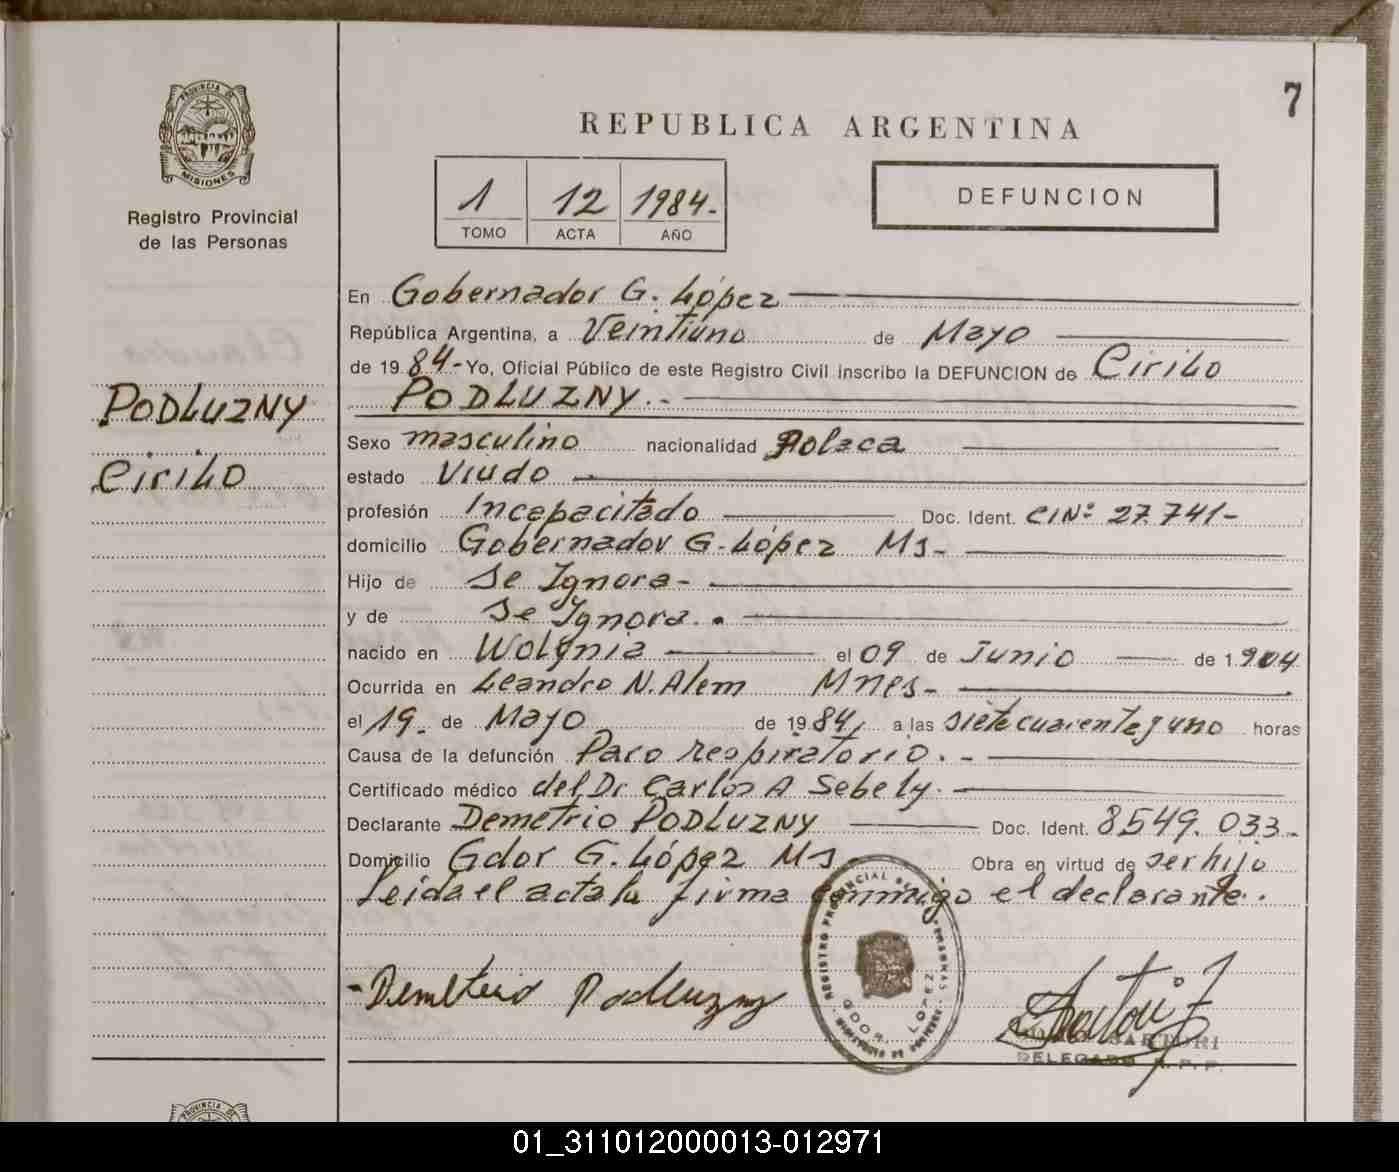 7
PROVINCIA DE
MISIONES
Registro Provincial
de las Personas
REPUBLICA ARGENTINA
1 12 1984.-
TOMO ACTA AÑO
DEFUNCION
En Gobernador G. López
República Argentina, a Veintiuno de Mayo
de 19 84.- Yo, Oficial Público de este Registro Civil inscribo la DEFUNCION de Cirilo
PODLUZNY.-
PODLUZNY
Cirilo
Sexo masculino nacionalidad Polaca
estado Viudo
profesión Incapacitado Doc. Ident. CINº 27.741-
domicilio Gobernador G. López Ms-
Hijo de Se Ignora-
y de Se Ignora.
nacido en Wolynia el 09 de Junio de 1.904
Ocurrida en Leandro N. Alem Mnes-
el 19. de Mayo de 19 84, a las siete cuarenta y uno horas
Causa de la defunción Paro respiratorio.-
Certificado médico del Dr Carlos A Sebely.
Declarante Demetrio PODLUZNY Doc. Ident. 8549.033-
Domicilio Gdor G. López Ms- Obra en virtud de ser hijo
Leída el acta la firma conmigo el declarante.
-Demetrio Podluzny
REGISTRO PROVINCIAL DE LAS PERSONAS
GDOR. LOPEZ
SARTORI
DELEGADO R.P.P.
PROVINCIA DE
01_311012000013-012971